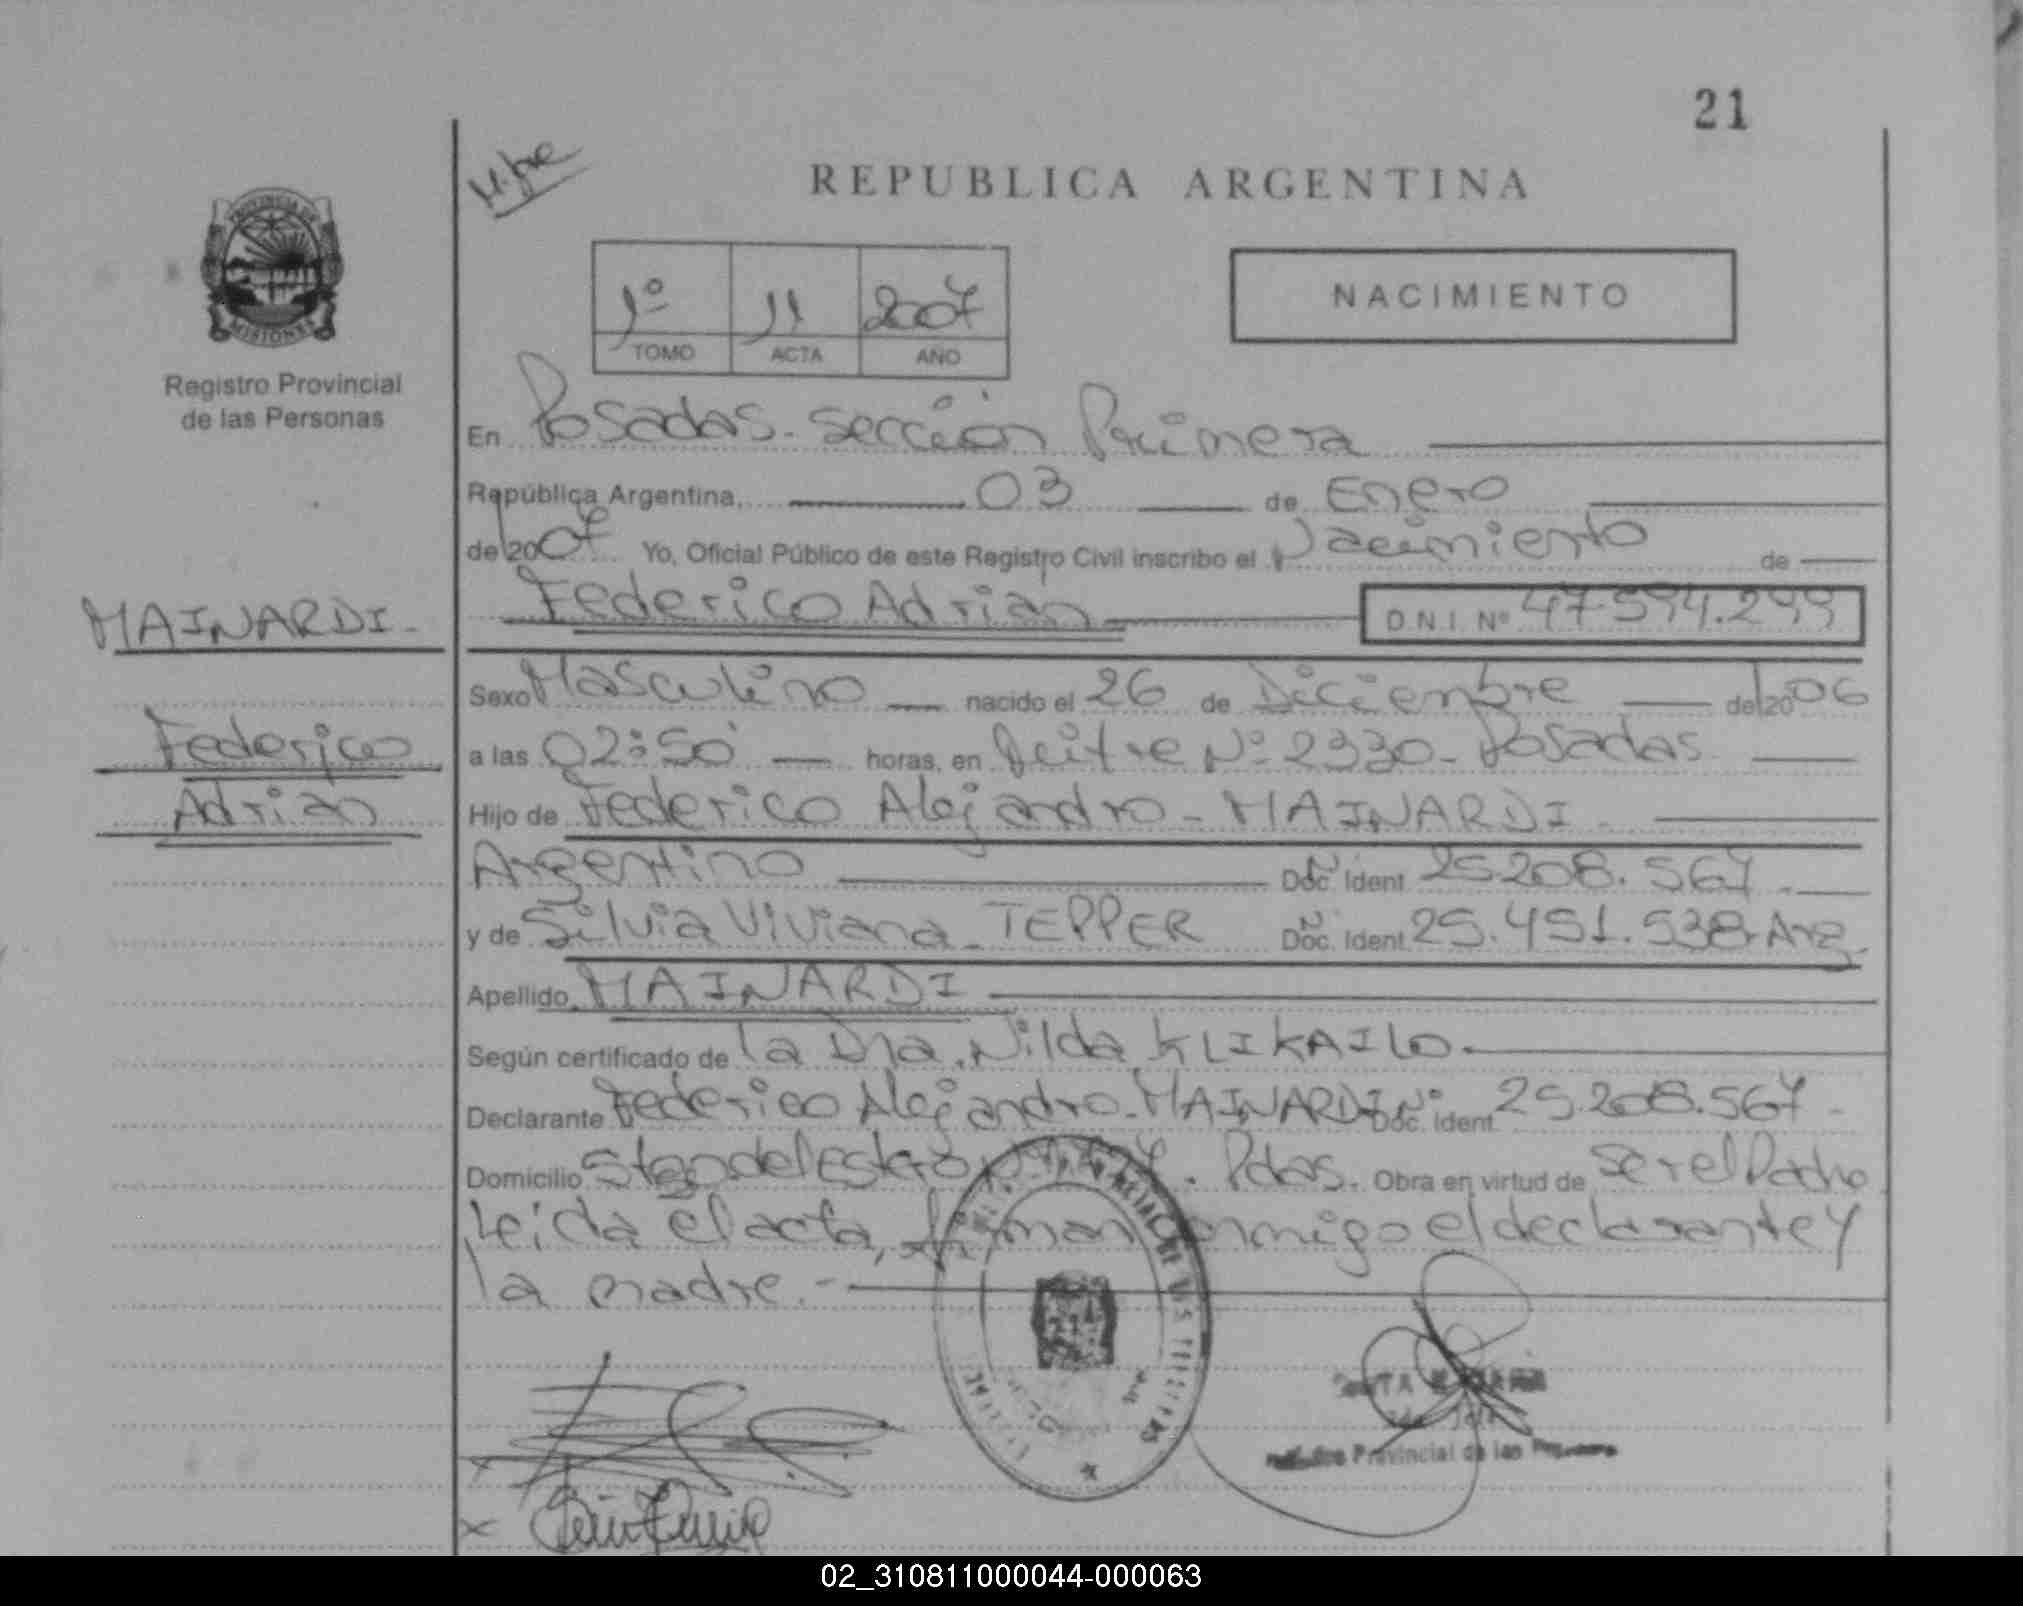 21
REPUBLICA ARGENTINA
PROVINCIA DE
MISIONES
Registro Provincial
de las Personas
1º 11 2007
TOMO ACTA AÑO
NACIMIENTO
En Posadas - sección Primera
República Argentina, 03 de Enero
de 2007 Yo, Oficial Público de este Registro Civil inscribo el Nacimiento de
Federico Adrian D.N.I. Nº 47.594.299
MAINARDI
Federico
Adrian
Sexo Masculino nacido el 26 de Diciembre de 2006
a las 02:50 horas, en Mitre Nº 2330 - Posadas
Hijo de Federico Alejandro - MAINARDI
Argentino Doc. Ident. 25.208.567
y de Silvia Viviana - TEPPER Doc. Ident. 25.451.538 Arg.
Apellido MAINARDI
Según certificado de la Dra. Nilda KLIKAILO
Declarante Federico Alejandro - MAINARDI Doc. Ident. 25.208.567
Domicilio Stgo del Estero Pdas. Obra en virtud de ser el Padre
Leida el acta, firman conmigo el declarante y
la madre.-
Provincial de las
02_310811000044-000063